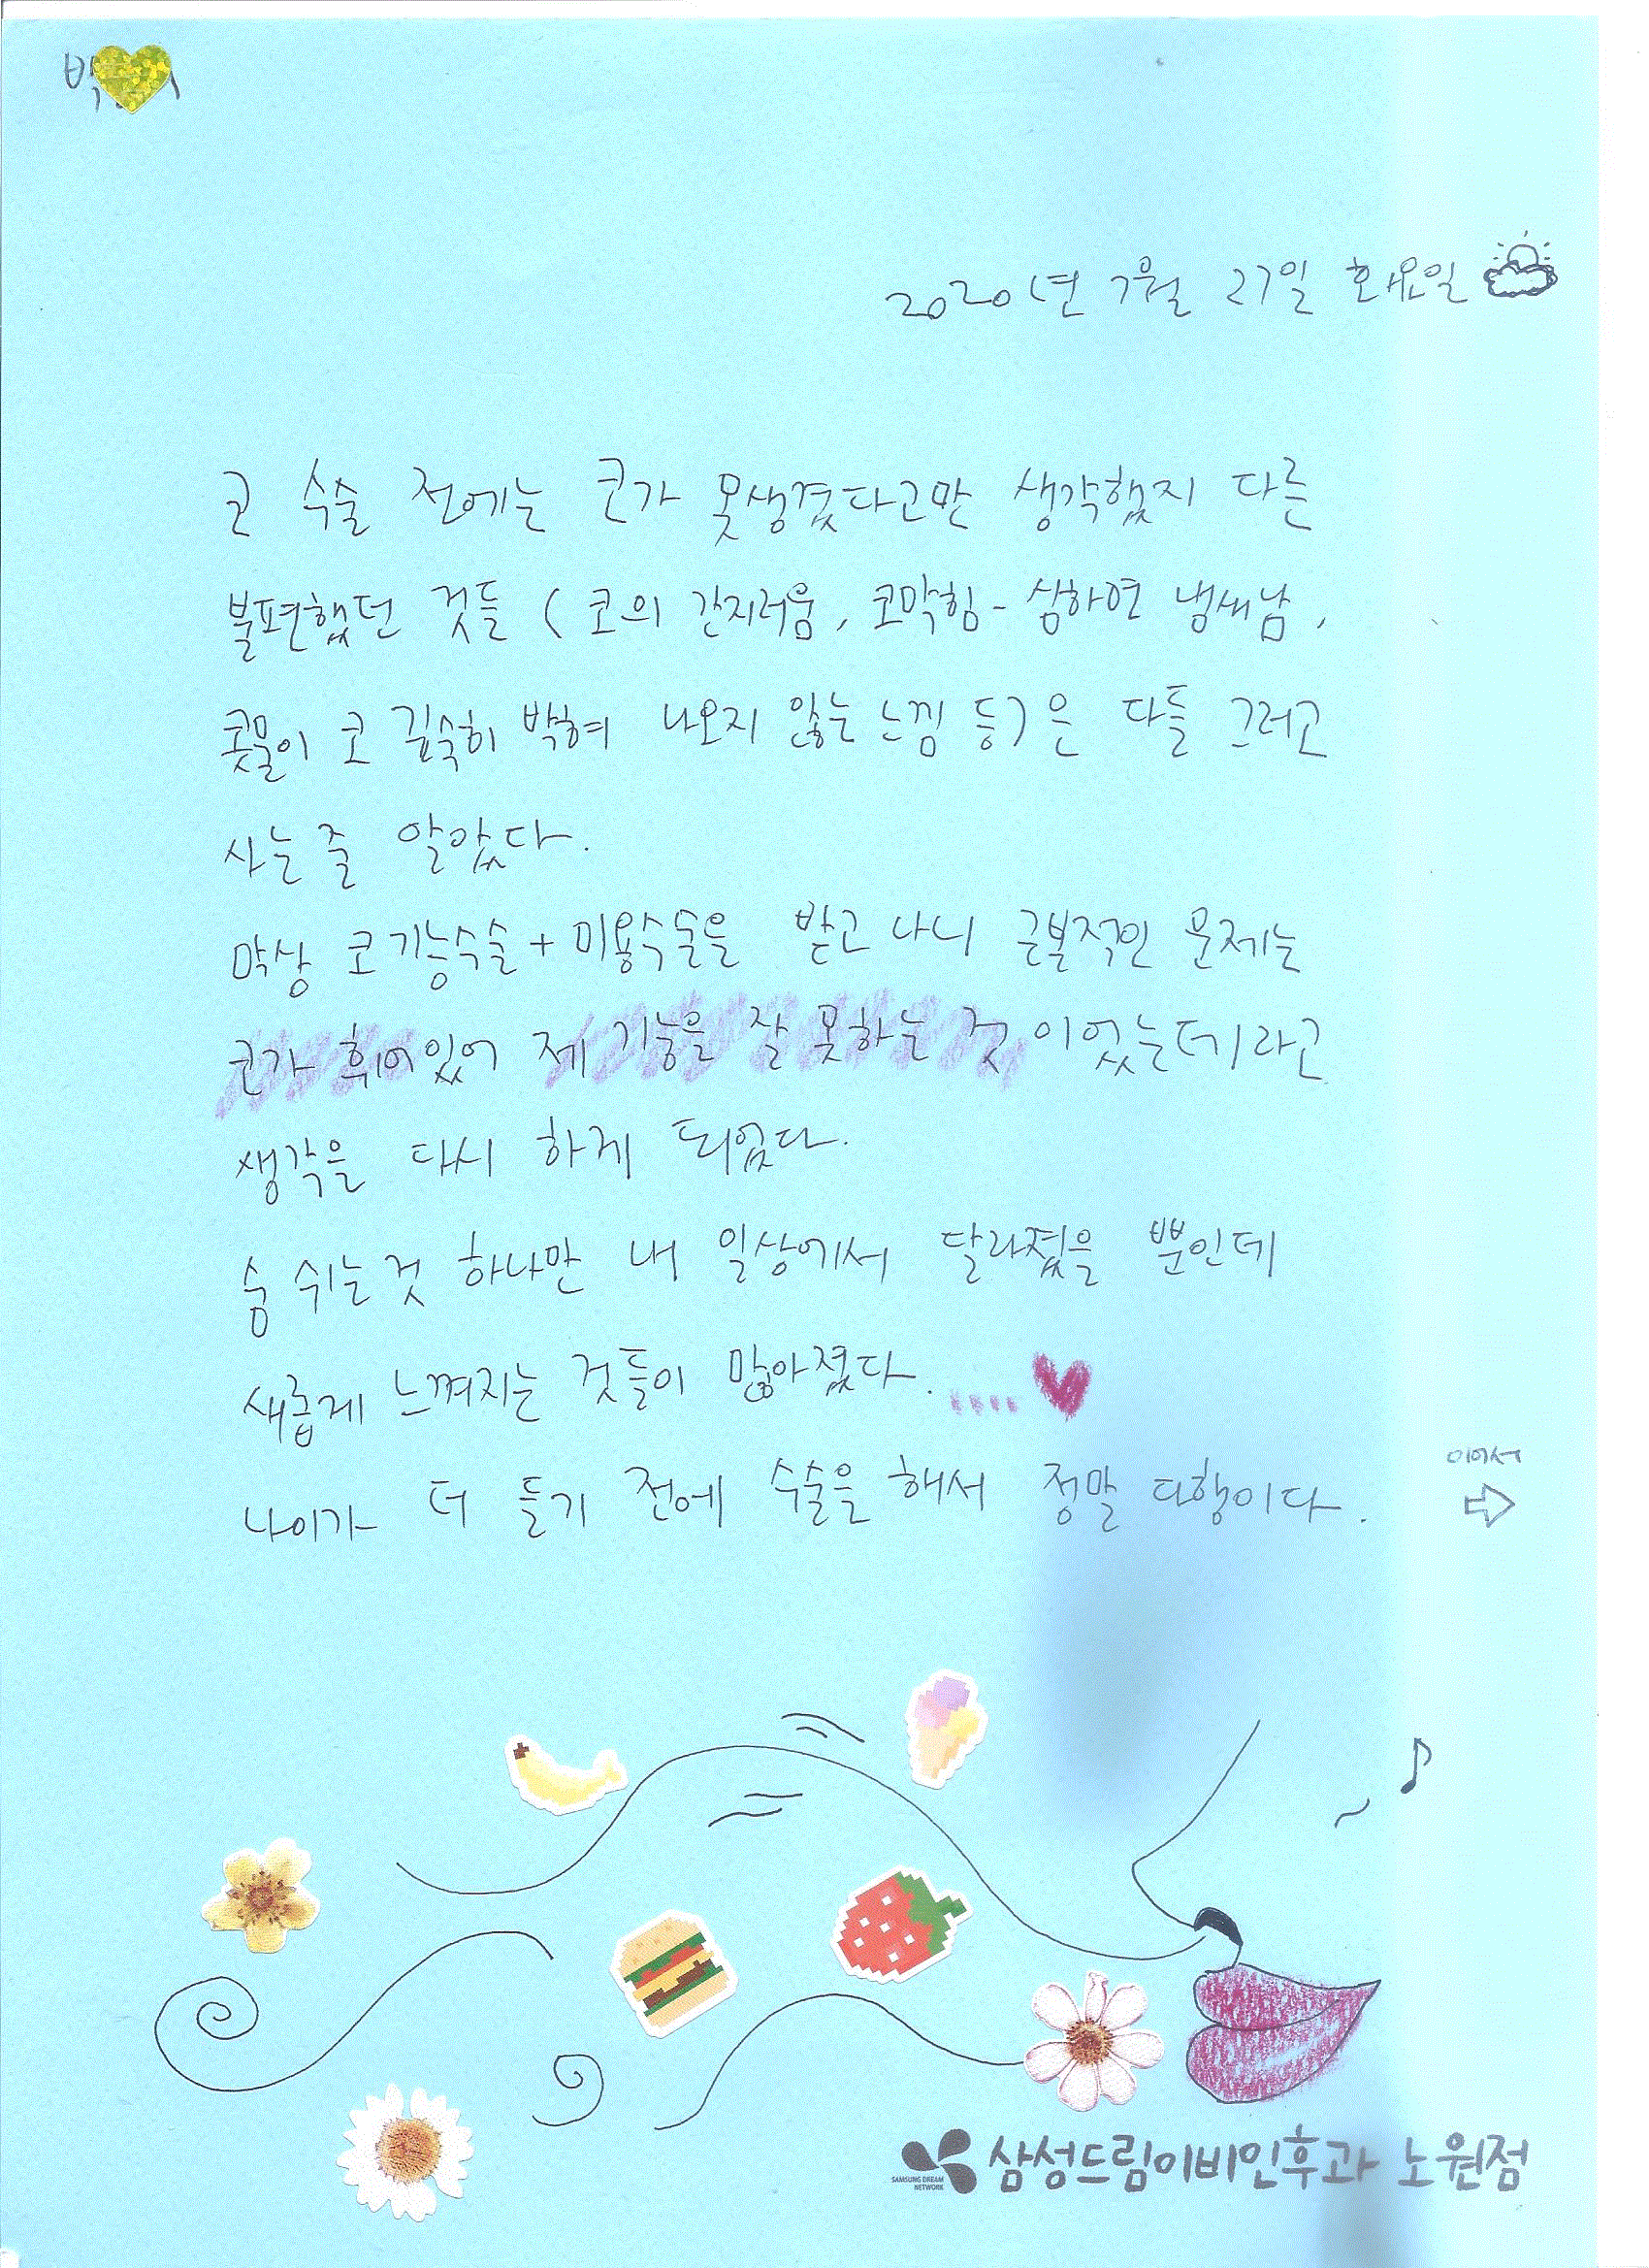 박
2020년 7월 27일 화요일
코 수술 전에는 코가 못생겼다고만 생각했지 다른
불편했던 것들 ( 코의 간지러움, 코막힘 - 심하면 냄새남,
콧물이 코 깊숙히 박혀 나오지 않는 느낌 등)은 다들 그러고
사는 줄 알았다.
막상 코기능수술+미용수술을 받고 나니 근본적인 문제는
코가 휘어있어 제 기능을 잘 못하는 것 이었는데 라고
생각을 다시 하게 되었다.
숨 쉬는 것 하나만 내 일상에서 달라졌을 뿐인데
새롭게 느껴지는 것들이 많아졌다.....
나이가 더 들기 전에 수술을 해서 정말 다행이다.
이어서
SAMSUNG DREAM
NETWORK
삼성드림이비인후과 노원점